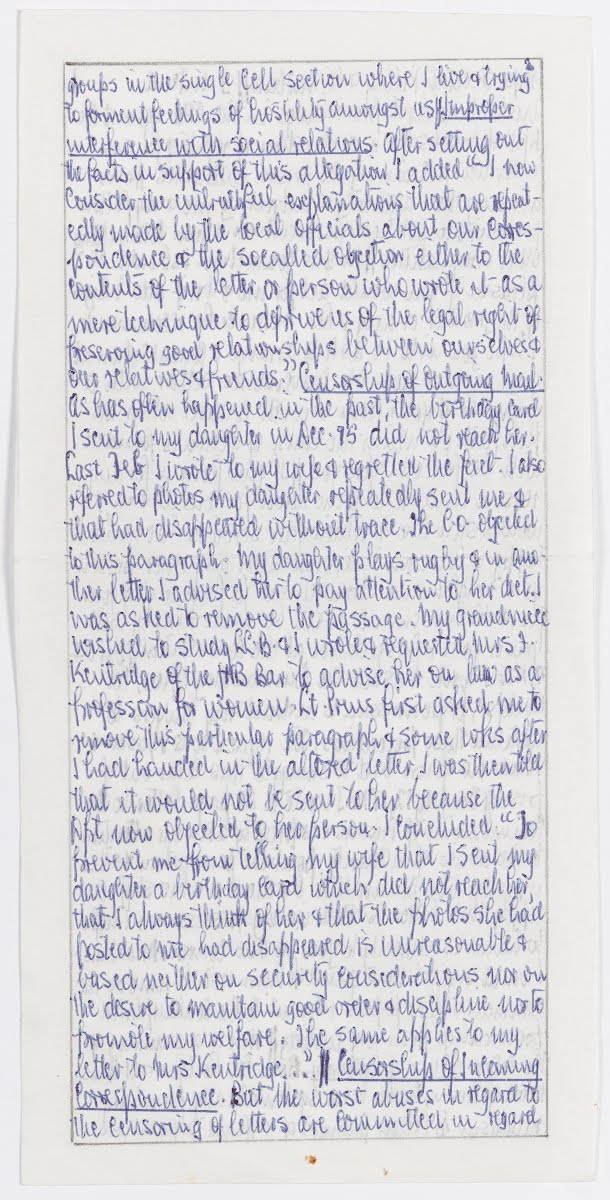 groups in the single cell section where I live & trying
to forment feelings of hostility amongst us. || Improper
interference with social relations. After setting out
the facts in support of this allegation I added "I now
consider the untruthful explanations that are repeat-
edly made by the local officials about our corres-
pondence & the socalled objection either to the
contents of the letter or person who wrote it as a
mere technique to deprive us of the legal right of
preserving good relationships between ourselves &
our relatives & friends." Censorship of Outgoing Mail.
As has often happened in the past, the birthday card
I sent to my daughter in Dec. 75 did not reach her.
Last Feb I wrote to my wife & regretted the fact. I also
referred to photos my daughter repeatedly sent me &
that had disappeared without trace. The C.O. objected
to this paragraph. My daughter plays rugby & in ano-
ther letter I advised her to pay attention to her diet. I
was asked to remove the passage. My grandniece
wished to study LL.B. & I wrote & requested Mrs F.
Kentridge of the JHB Bar to advise her on law as a
profession for women. Lt. Prins first asked me to
remove this particular paragraph & some wks after
I had handed in the altered letter, I was then told
that it would not be sent to her because the
Dpt now objected to her person. I concluded: "To
prevent me from telling my wife that I sent my
daughter a birthday card which did not reach her,
that I always think of her & that the photos she had
posted to me had disappeared is unreasonable &
based neither on security considerations nor on
the desire to maintain good order & discipline nor to
promote my welfare. The same applies to my
letter to Mrs Kentridge..." || Censorship of Incoming
Correspondence. But the worst abuses in regard to
the censoring of letters are committed in regard